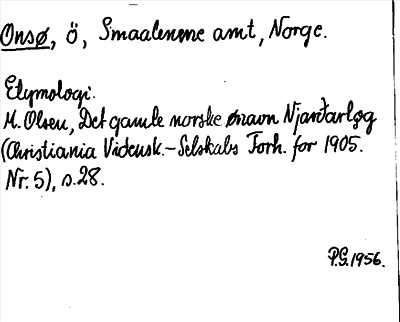 Onsø, ö, Smaalenene amt, Norge.
Etymologi.
M. Olsen, Det gamle norske ønavn Njarðarløg
(Christiania Vidensk.-Selskabs Forh. for 1905.
Nr. 5), s. 28.
P.G. 1956.